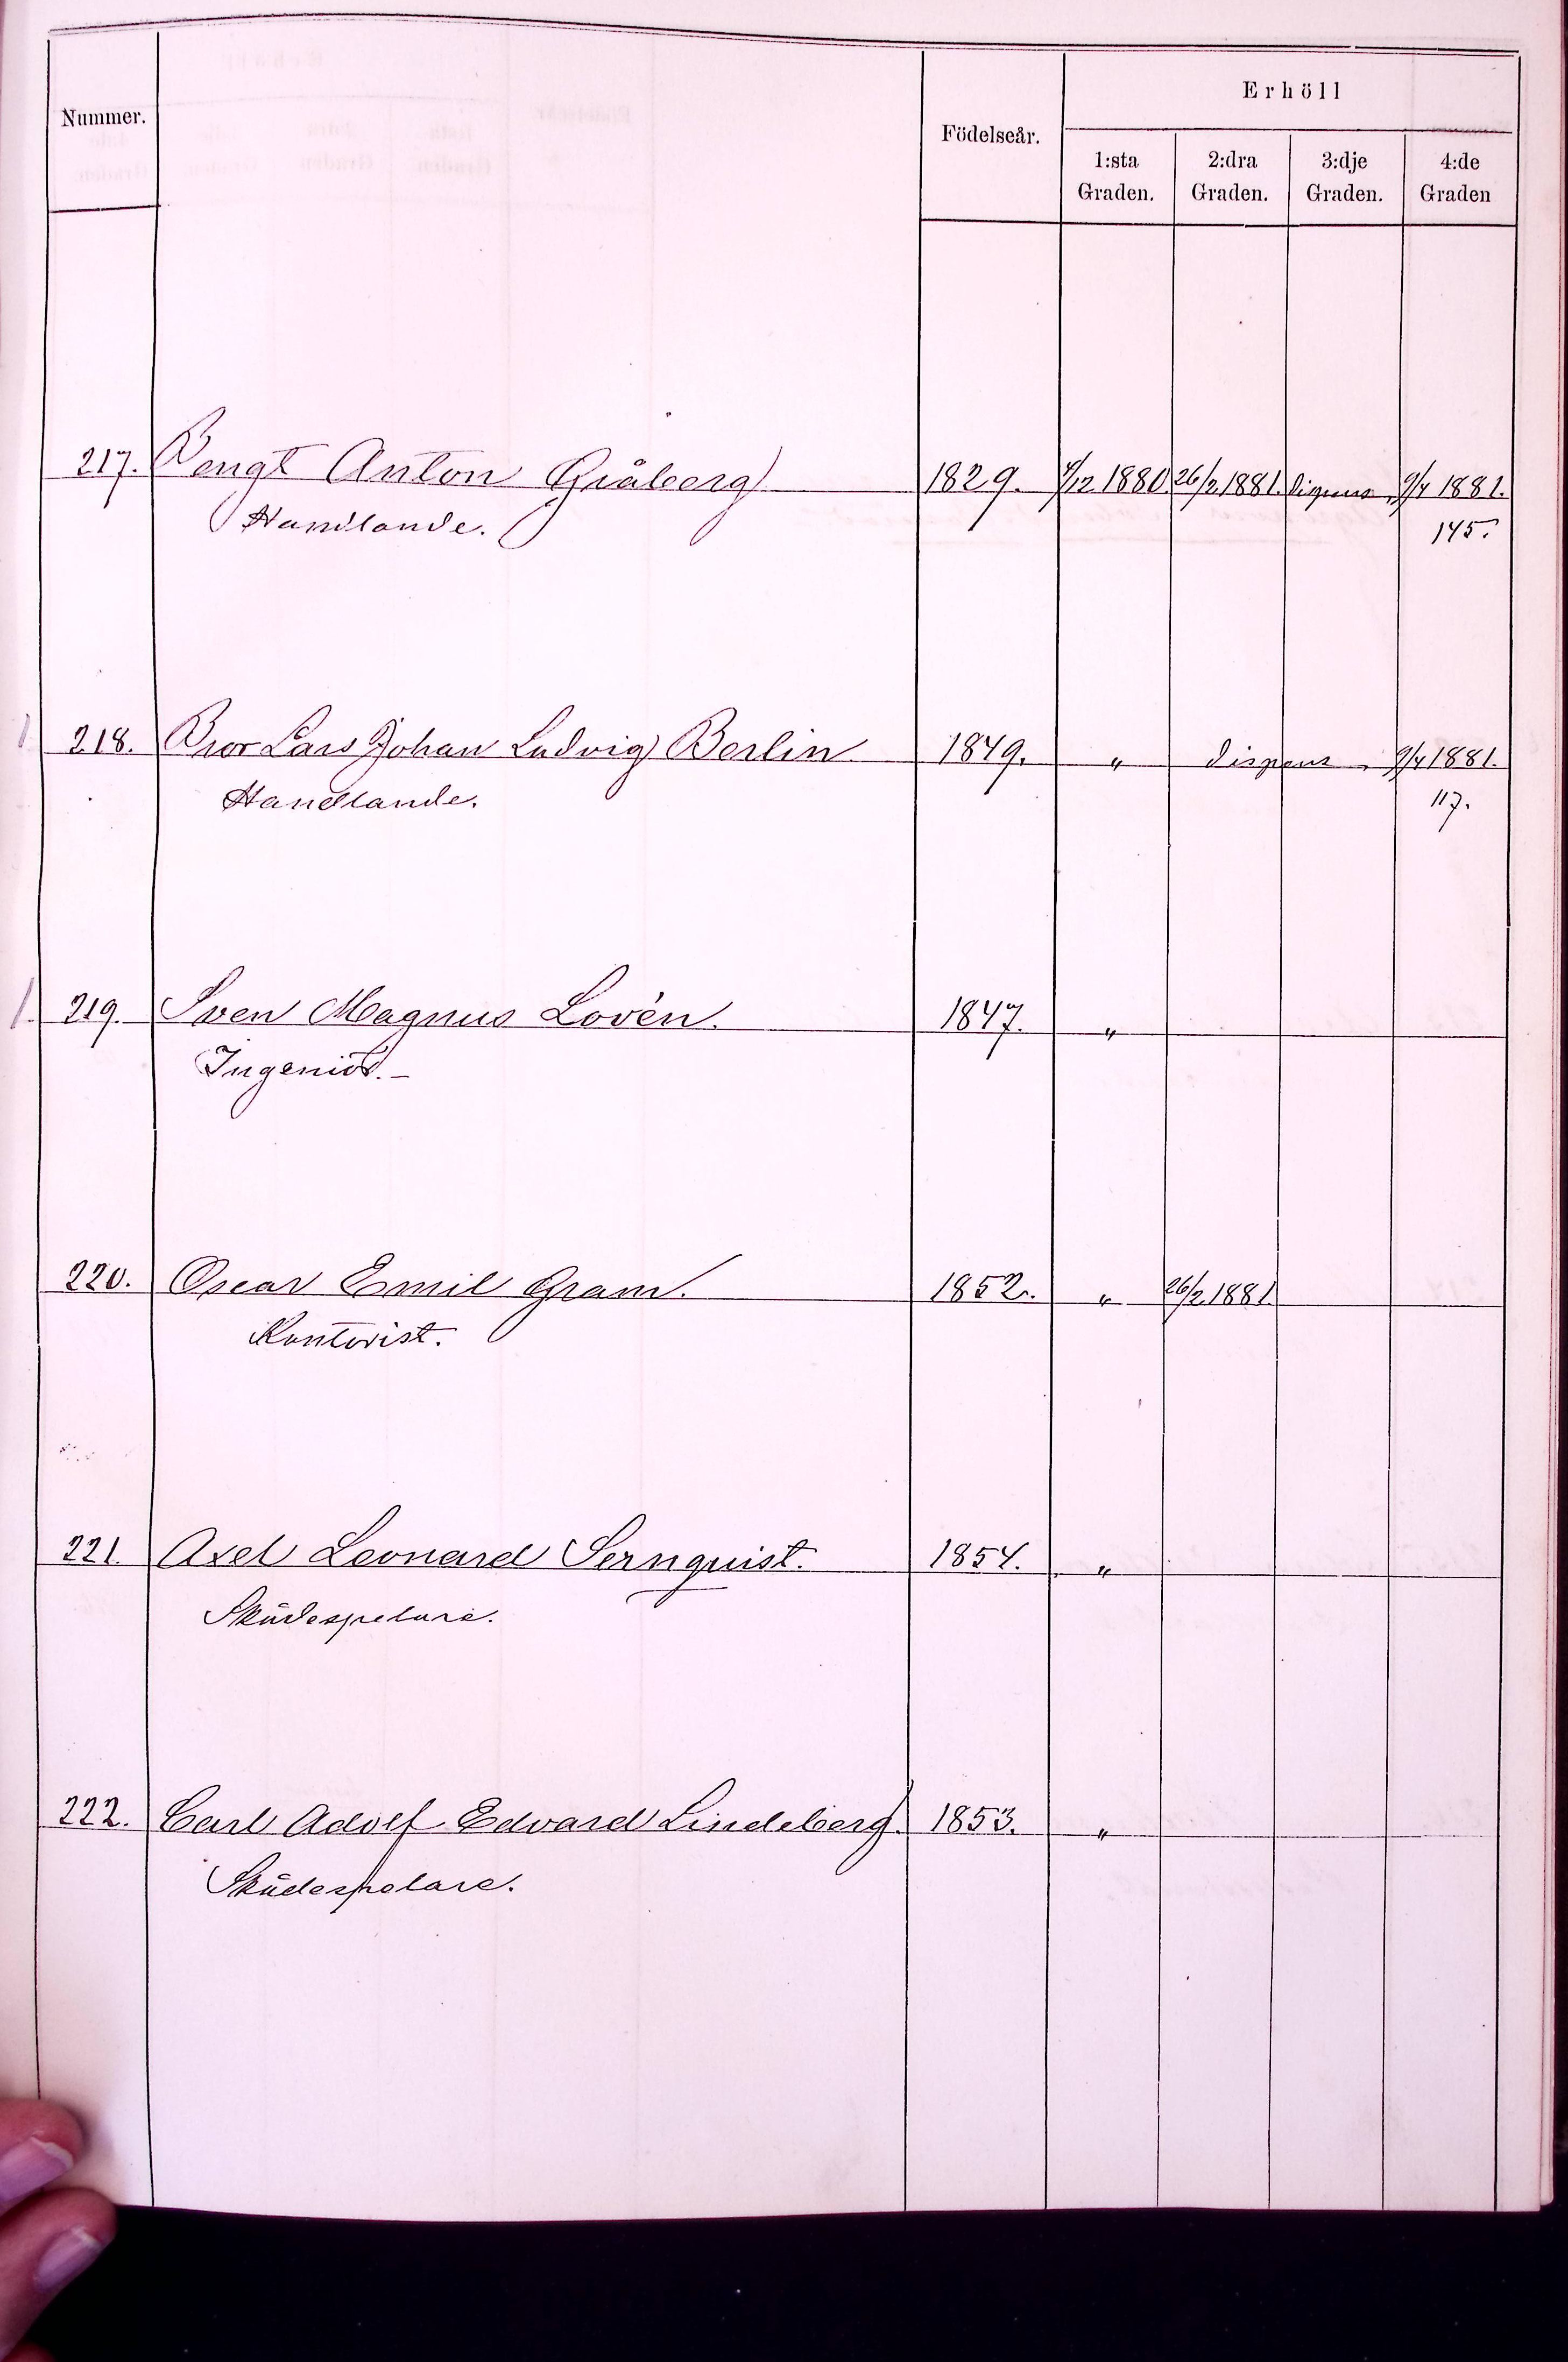 Nummer.
Födelseår.
Erhöll
1:sta Graden.
2:dra Graden.
3:dje Graden.
4:de Graden
217. Bengt Anton Gråberg 1829. 4/12 1880. 26/2 1881. dispens. 9/4 1881.
Handlande. 145.
218. Bror Lars Johan Ludvig Berlin 1849. " dispens. 9/4 1881.
Handlande. 117.
219. Sven Magnus Lovén. 1847. "
Ingeniör.
220. Oscar Emil Gram. 1852. " 26/2 1881.
Kontorist.
221. Axel Leonard Sernquist. 1854. "
Skådespelare.
222. Carl Adolf Edvard Lindeberg. 1853. "
Skådespelare.